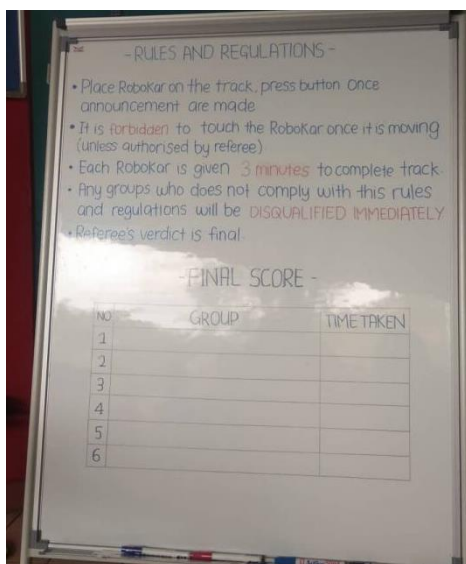 - RULES AND REGULATIONS -
• Place Robokar on the track, press button Once
announcement are made
• It is forbidden to touch the Robokar once it is moving
(unless authorised by referee)
• Each Robokar is given 3 minutes to complete track.
• Any groups who does not comply with this rules
and regulations will be DISQUALIFIED IMMEDIATELY
• Referee's verdict is final.
- FINAL SCORE -
NO GROUP TIME TAKEN
1
2
3
4
5
6